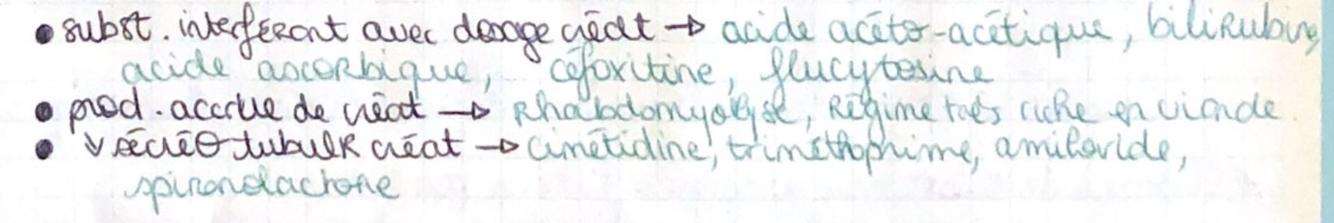 • subst. interférant avec dosage créat → acide acéto-acétique, bilirubine,
acide ascorbique, céfoxitine, flucytosine
• prod. accrue de créat → Rhabdomyolyse, Régime très riche en viande
• ↘ sécréθ tubulR créat → cimétidine, triméthoprime, amiloride,
spironolactone